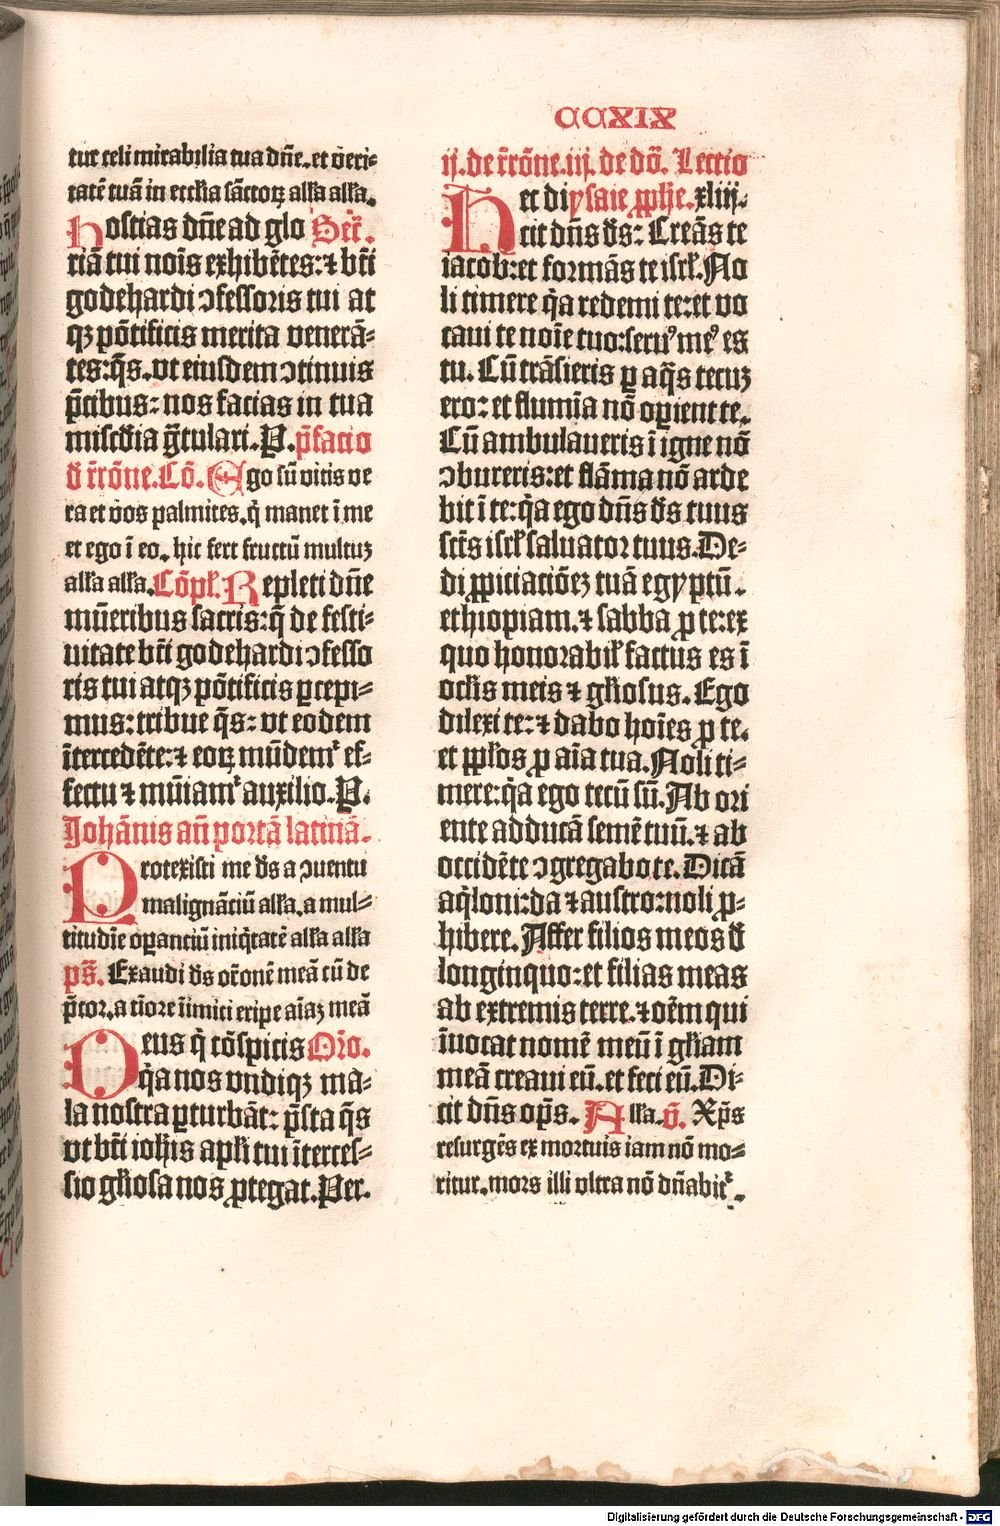 CCXIX
tur celi mirabilia tua dn̄e. et v̄eri-
tatē tuā in eccl̄ia sāctoꝝ allā allā.
Hostias dn̄e ad glo Secr̄.
riā tui noīs exhibētes: ⁊ bt̄i
godehardi ↄfessoris tui at
qꝫ pōtificis merita venerā-
tes: q̄s. vt eiusdem ↄtinuis
p̄cibus: nos facias in tua
miscd̄ia gr̄tulari. P. p̄facio
d̄ r̄rōne. Cō. Ego sū vitis ve
ra et v̄os palmites. q̄ manet ī me
et ego ī eo. hic fert fructū multuꝫ
allā allā. Cōpl̄. Repleti dn̄e
mūeribus sacris: q̄ de festi-
uitate bt̄i godehardi ↄfesso
ris tui atqꝫ pōtificis ꝑcepi-
mus: tribue q̄s: vt eodem
ītercedēte: ⁊ eoꝝ mūdemr̄ ef-
fectu ⁊ mūiamr̄ auxilio. P.
Johānis an̄ portā latinā.
Protexisti me ds̄ a ↄuentu
malignāciū allā. a mul-
titudīe oꝑanciū iniq̄tatē allā allā
ps̄. Exaudi ds̄ or̄onē meā cū de
p̄cor. a tīore īimici eripe aīaꝫ meā
Deus q̄ cōspicis Or̄o.
q̄a nos vndiqꝫ ma-
la nostra ꝑturbāt: p̄sta q̄s
vt bt̄i ioh̄is apl̄i tui īterces-
sio gl̄iosa nos ꝓtegat. Per.
ij. de r̄rōne. iij. de dō. Lectio
Hec dicit ysaie ꝓph̄e. xliij.
cit dn̄s ds̄: Creās te
iacob: et formās te isrl̄. No
li timere q̄a redemi te: et vo
caui te noīe tuo: seruꝰ meꝰ es
tu. Cū trāsieris ꝑ aq̄s tecuꝫ
ero: et flumīa nō oꝑient te.
Cū ambulaueris ī igne nō
ↄbureris: et flāma nō arde
bit ī te: q̄a ego dn̄s ds̄ tuus
sct̄s isrl̄ saluator tuus. De-
di ꝓpiciaciōeꝫ tuā egyptū.
ethiopiam. ⁊ sabba ꝑ te: ex
quo honorabil̄ factus es ī
ocl̄is meis ⁊ gl̄iosus. Ego
dilexi te: ⁊ dabo hoīes ꝑ te.
et ppl̄os ꝓ aīa tua. Noli ti-
mere: q̄a ego tecū sū. Ab ori
ente adducā semē tuū. ⁊ ab
occidēte ↄgregabo te. Dicā
aq̄loni: da ⁊ austro: noli ꝓ-
hibere. Affer filios meos d̄
longinquo: et filias meas
ab extremis terre. ⁊ oēm qui
īuocat nomē meū ī gl̄iam
meā creaui eū. et feci eū. Di-
cit dn̄s op̄s. Allā. v̄. Xp̄s
resurgēs ex mortuis iam nō mo-
ritur. mors illi vltra nō dn̄abitr̄.
Digitalisierung gefördert durch die Deutsche Forschungsgemeinschaft - DFG